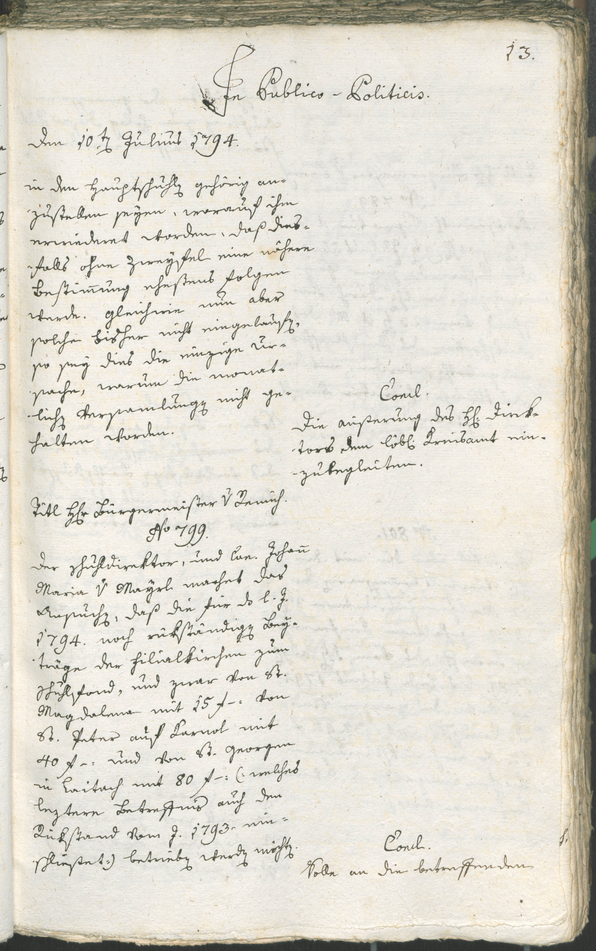 13.
In Publico-Politicis.
Den 10ten Julius 1794.
in den Hauptschulen gehörig an-
zustellen seyen, worauf ihm
erwiederet worden, daß dies-
falls ohne Zweyfel eine nähere
Bestimung ehestens folgen
werde. Gleichwie nun aber
solche bisher nicht eingelaufen,
so sey dies die einzige Ur-
sache, warum die monat-
lichen Versamlungen nicht ge-
halten worden.
Concl.
Die äußerung des H: Direk-
tors dem löbl Kreisamt ein-
zubegleiten.
Titl H: Bürgermeister v
No 799.
Der Schuldirektor, und Can. Johan
Maria v Mayrl machet das
Ansuchen, daß die für d: l. J.
1794. noch rükständigen Bey-
träge der Filialkirchen zum
Schulfond, und zwar von St.
Magdalena mit 15 f-: von
St. Peter auf Karnol mit
40 f-: und von St. Georgen
in mit 80 f-: (: welches
leztere Betreffnis auch den
Rükstand vom J. 1793. ein-
schliesset:) betrieben werden möchten.
Concl.
Solle an die betreffenden